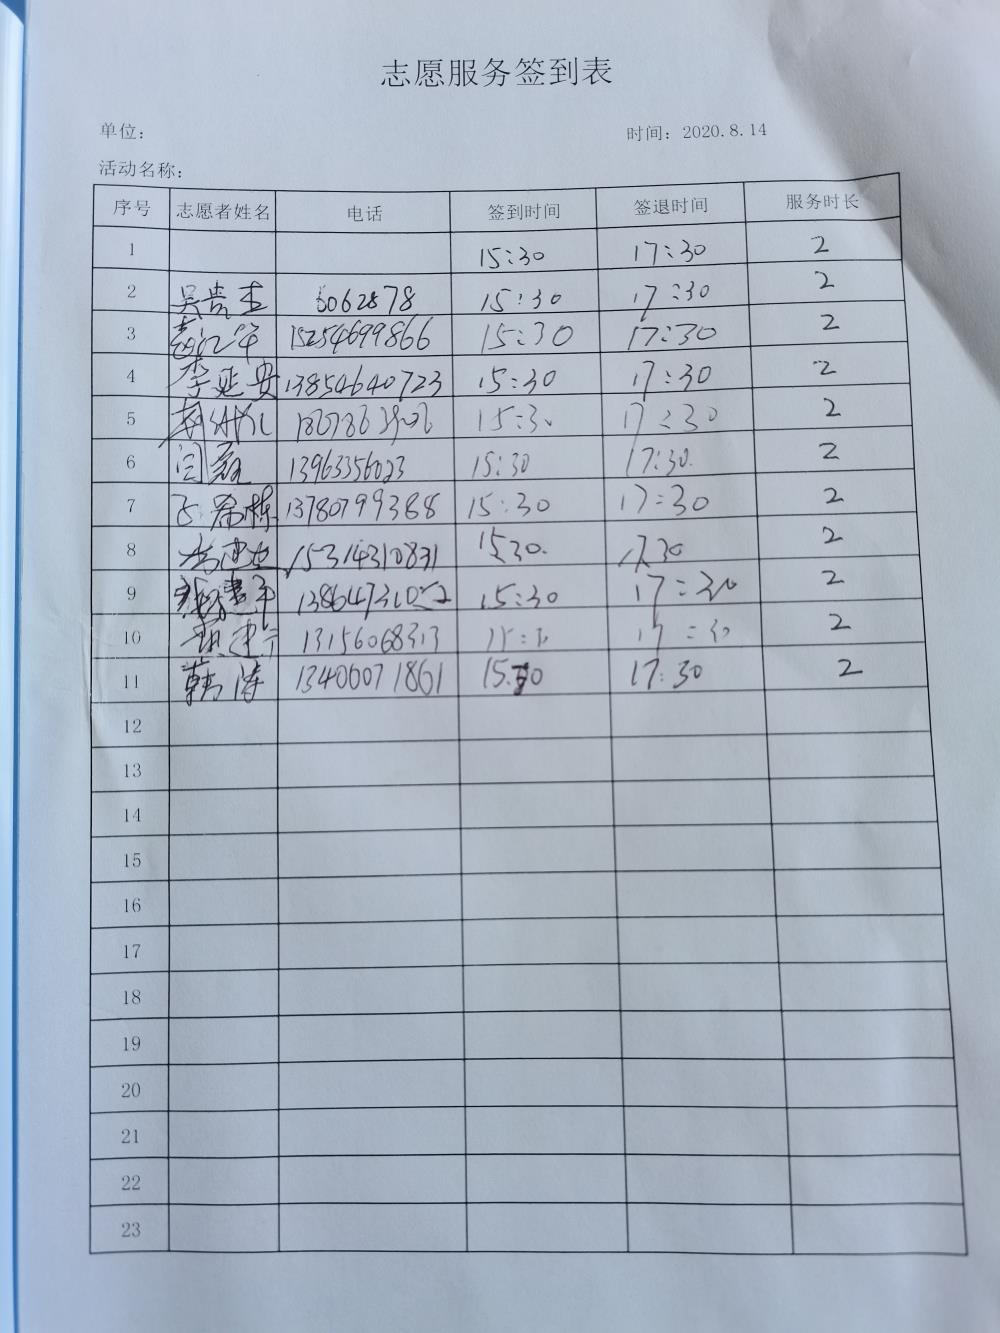 志愿服务签到表
单位: 时间: 2020.8.14
活动名称:
序号 志愿者姓名 电话 签到时间 签退时间 服务时长
1 15:30 17:30 2
2 吴贵圭 6062878 15:30 17:30 2
3 15254699866 15:30 17:30 2
4 李延安 13854640723 15:30 17:30 2
5 15:30 17:30 2
6 闫 13963356023 15:30 17:30 2
7 希栋 13780799388 15:30 17:30 2
8 15314310831 15:30. 17:30 2
9 15:30 17:30 2
10 13156068313 15:30 17:30 2
11 韩涛 13406071861 15:30 17:30 2
12
13
14
15
16
17
18
19
20
21
22
23